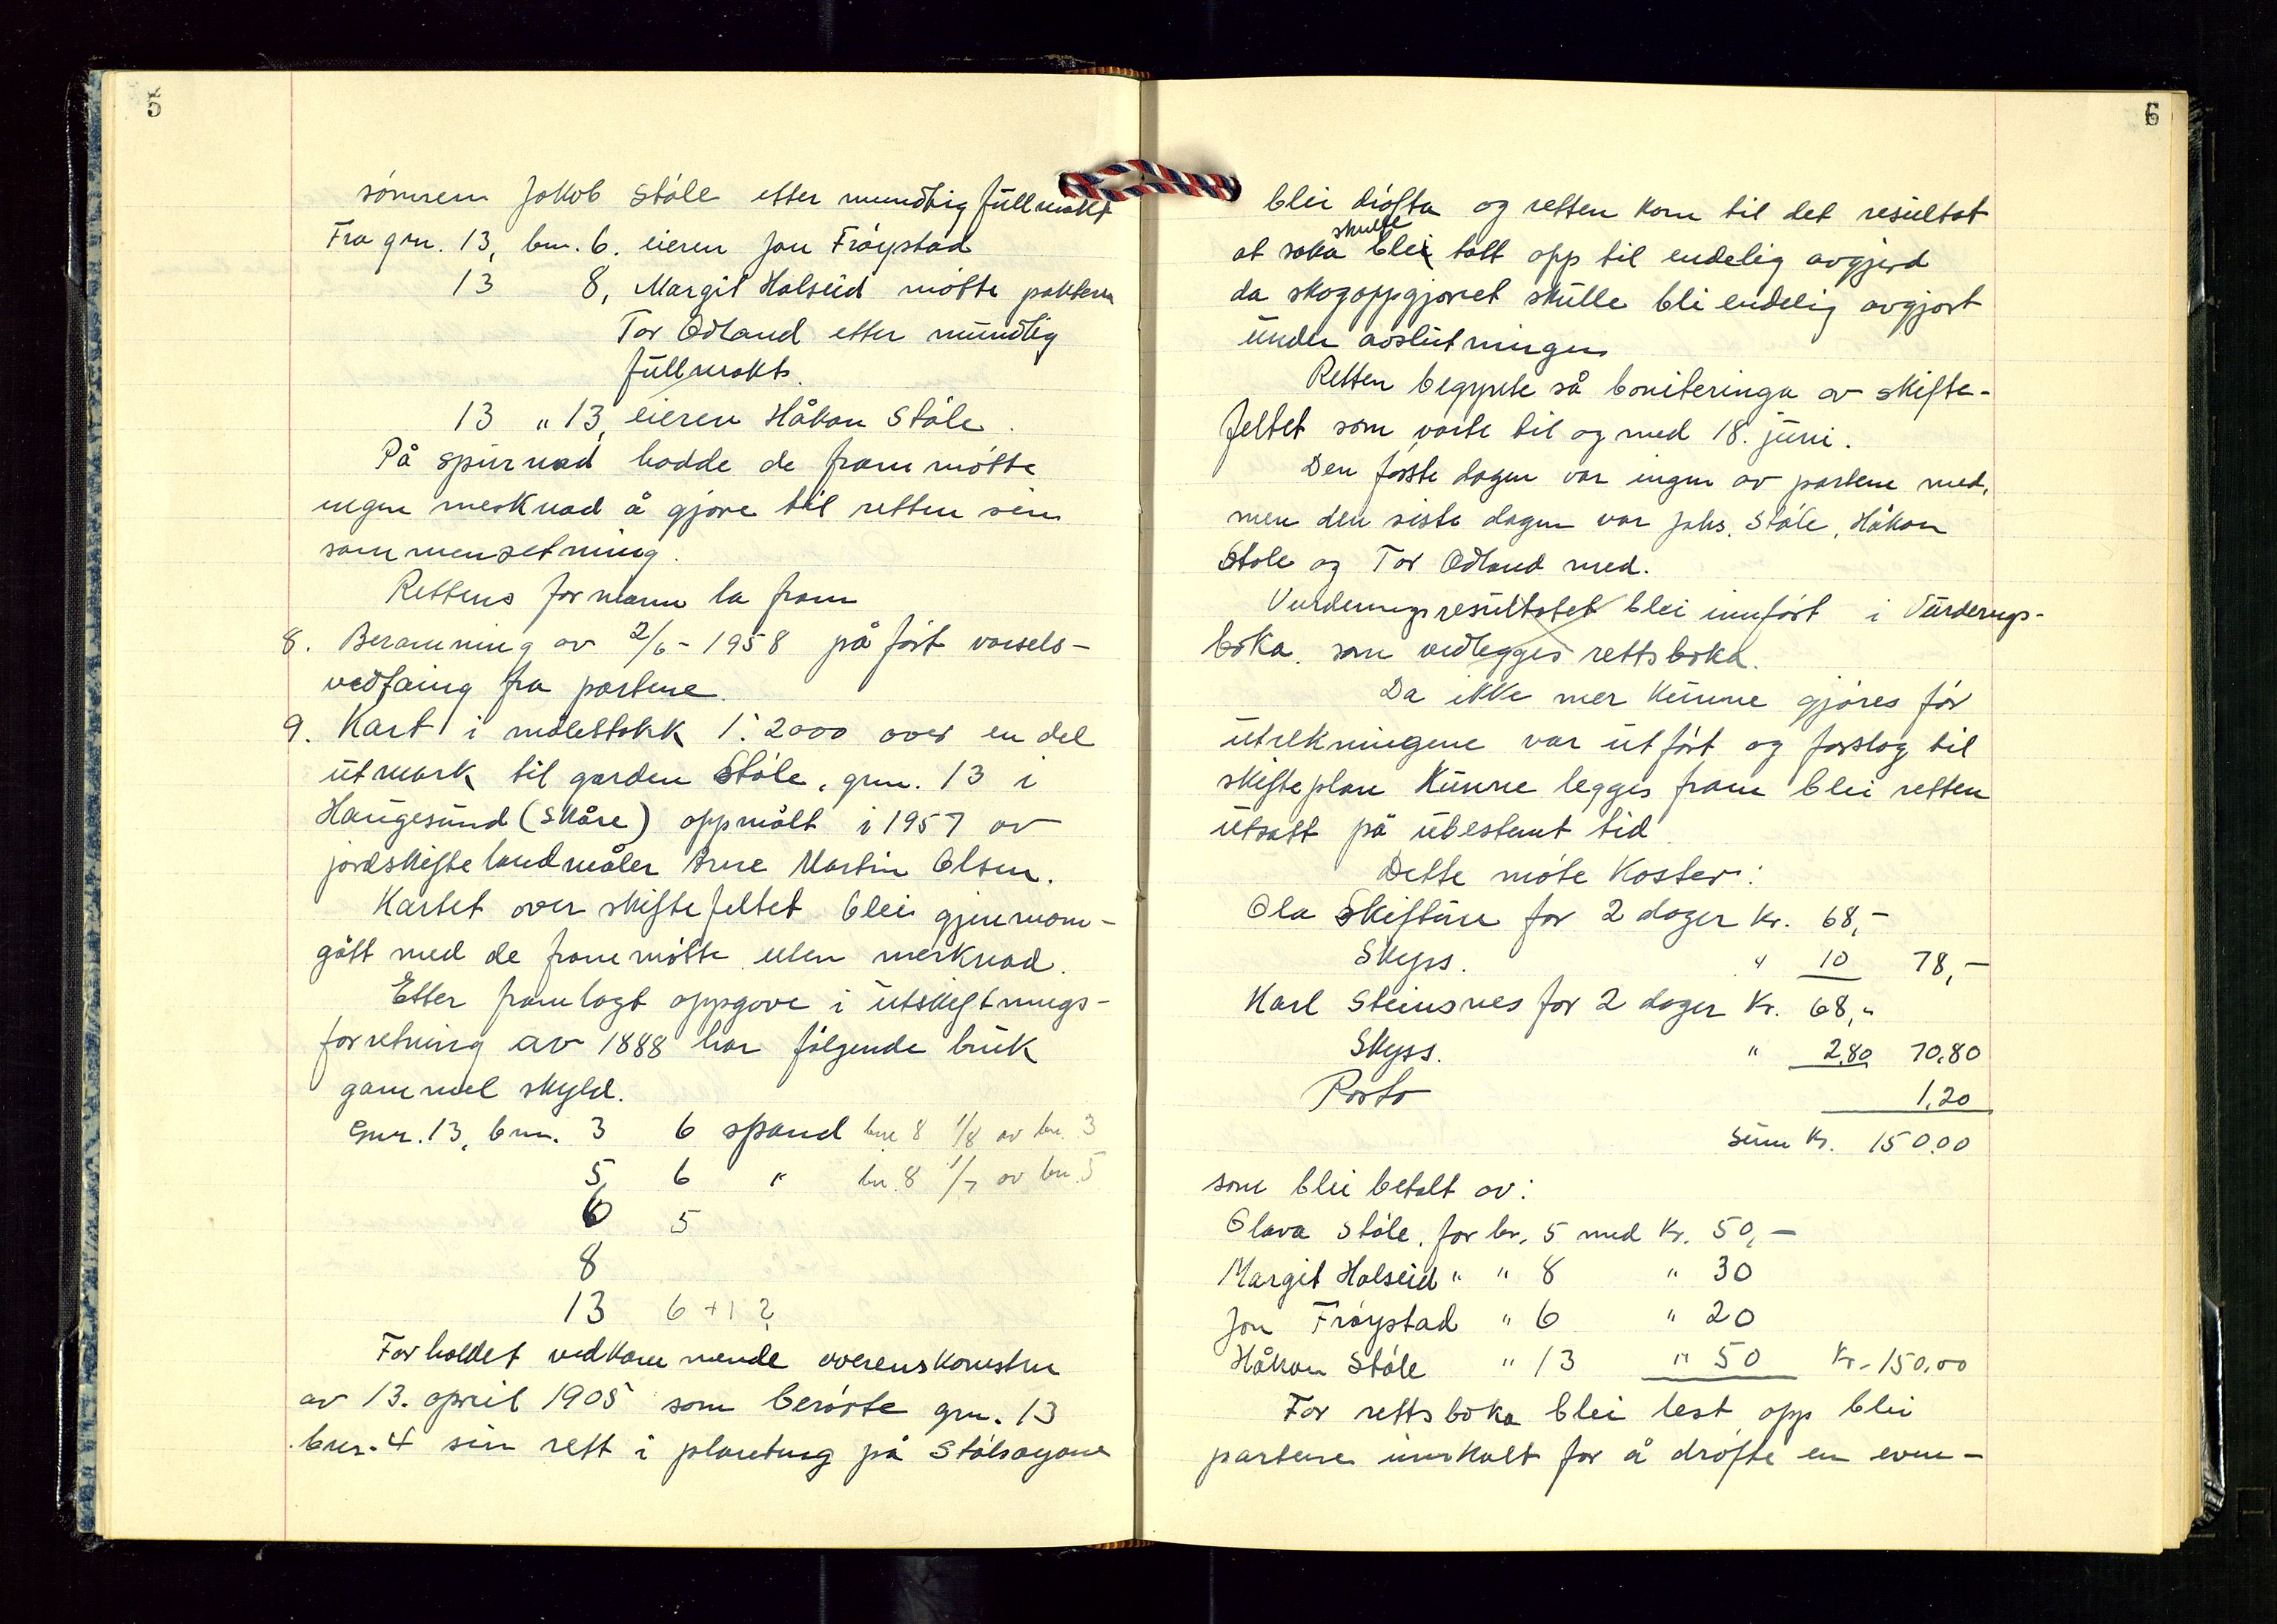 5
sønnen Jakob Støle etter mundtlig fullmakt
Fra gnr. 13, bnr. 6. eieren Jon Frøystad
13 8, Margit Halseid møtte pakteren
Tor Ødland etter mundlig
fullmakt.
13 " 13, eieren Håkon Støle.
På spurnad hadde de frammøtte
ingen merknad å gjøre til retten sin
sammensetning.
Rettens formann la fram
8. Beramming av 2/6-1958 påført varsels-
vedtaing fra partene.
9. Kart i målestokk 1:2000 over en del
utmark til garden Støle, gnr. 13 i
Haugesund (Skåre) oppmålt i 1957 av
jordskiftelandmåler Arne Martin Olsen.
Kartet over skiftefeltet blei gjennom-
gått med de frammøtte uten merknad.
Etter framlagt oppgave i utskiftnings-
forretning av 1888 har følgende bruk
gammel skyld.
Gnr. 13, bnr. 3 6 spand bnr. 8 1/8 av bnr. 3
5, 6 " bnr. 8 1/7 av bnr. 5
6 5
8
13 6 + 1 ?
Forholdet vedkommende overenskomsten
av 13. april 1905 som berøvte gnr. 13
bnr. 4 sin rett i planting på Stølsøyane
6
blei drøfta og retten kom til det resultat
skulle
at saka blei tatt opp til endelig avgjerd
da skogoppgjøret skulle bli endelig avgjort
under avslutningen
Retten begynte så boniteringa av skifte-
feltet som varte til og med 18. juni.
Den første dagen var ingen av partene med,
men den siste dagen var Johs. Støle, Håkon
Støle og Tor Ødland med.
Vurderingsresultatet blei innført i Vurderings-
boka som vedlegges rettsboka.
Da ikke mer kunne gjøres før
utrekningene var utført og forslag til
skifteplan kunne legges fram blei retten
utsatt på ubestemt tid
Dette møte koster:
Ola Skiftun for 2 dager kr. 68,-
Skyss. " 10 78,-
Karl Steinsnes for 2 dager kr. 68,-
Skyss. " 2.80 70.80
Porto 1.20
Sum kr. 150.00
som blei betalt av:
Olava Støle, for br. 5 med kr. 50,-
Margit Halseid " " 8 " 30
Jon Frøystad " 6 " 20
Håkon Støle " 13 " 50 Kr. 150.00
Før rettsboka blei lest opp blei
partene innkalt for å drøfte en even-